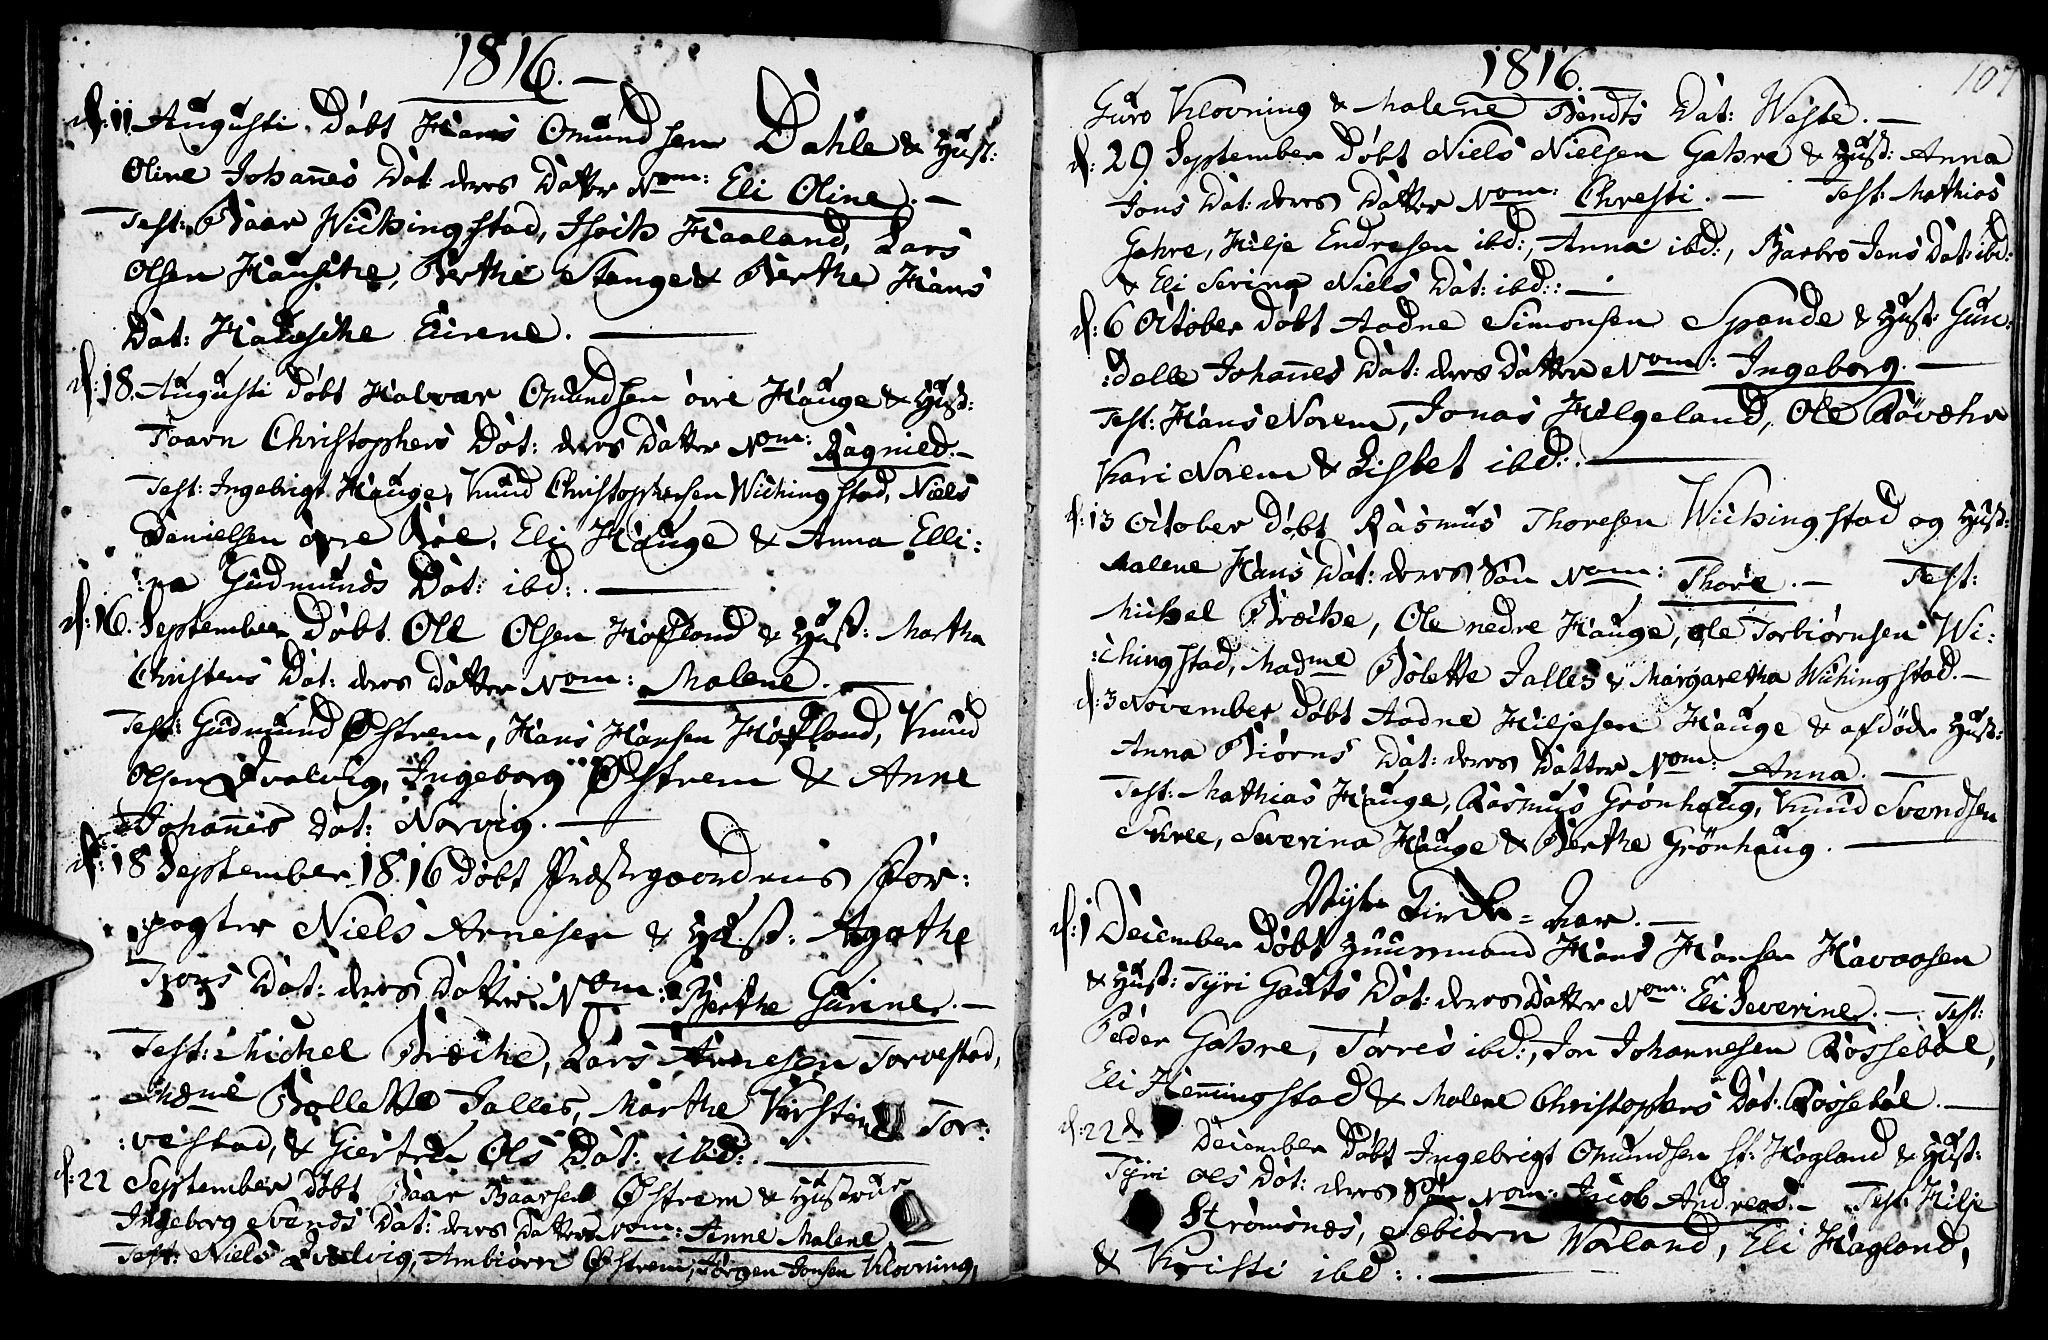 1816.
d: 11 Augusti døbt Hans Omundsen Dahle & Hust:
Oline Johannes Dat: deres Datter Nom: Eli Oline.
Test: Baar Wichingstad, Isach Haaland, Lars
Olsen Hausche, Berthe Stange & Berthe Hans
Dat: Hausche Eirene.
d: 18. Augusti døbt Halvar Omundsen øvre Hauge & Hust:
Taarn Christophers Dat: deres Datter Nom: Ragnild.
Test: Ingebrigt Hauge, Knud Christophersen Wichingstad, Niels
Danielsen øvre Bøe, Eli Hauge & Anna Elli:
:na Gudmunds Dat: ibd:.
d: 16. September døbt Ole Olsen Hofland & Hust: Martha
Christens Dat: deres Datter Nom: Malene.
Test: Gudmund Østrem, Hans Hansen Hofland, Knud
Olsen Qvalvig, Ingeborg Østrem & Anne
Johannes Dat: Norvig.
d: 18 September 1816 døbt Præstegaardens For:
:pagter Niels Arnesen & Hust: Agathe
Dat: deres Datter Nom: Berthe Gurine.
Test: Michel Bræche, Lars Arnesen Torvestad,
Madme Bollette Jalles, Marthe Kirstine Tor:
:vestad, & Giertru Ols Dat: ibd:.
d: 22 September døbt Baar Baarsen Østrem & Hustrue
Ingeborg Svends Dat: deres Datter Nom: Anne Malene.
Test: Niels Qvalvig, Ambiørn Østrem, Jørgen Jonsen Klovning,
1816.
107
Guro Klovning & Malene Bendts Dat: Weste.
d: 29 September døbt Niels Nielsen Gahre & Hust: Anna
Jons Dat: deres Datter Nom: Chresti. Test: Mathias
Gahre, Hilje Endresen ibd:, Anna ibd:, Barbro Jens Dat: ibd:
& Eli Serina Niels Dat: ibd:.
d: 6 October døbt Aadne Simonsen Spande & Hust: Gun:
:delle Johannes Dat: deres Datter Nom: Ingeborg.
Test: Hans Norem, Jonas Helgeland, Ole Røvæhr
Kari Norem & Lisbet ibd:.
d: 13 October døbt Rasmus Thoresen Wichingstad og Hust:
Malene Hans Dat: deres Søn Nom: Thore. Test:
Michel Bræche, Ole nedre Hauge, Ole Torbiørnsen Wi:
:chingstad, Madme Bolette Jalles & Margaretha Wichingstad.
d: 3 November døbt Aadne Hiljesen Hauge & afdøde Hust:
Anna Biørns Dat: deres Datter Nom: Anna.
Test: Mathias Hauge, Rasmus Grønhaug, Knud Svendsen
Skree, Severina Hauge & Berthe Grønhaug.
Nyt Kirke-Aar.
d: 1 December døbt Huusmand Hans Hansen Havaasen
& Hust: Tyri Gauts Dat: deres Datter Nom: Eli Severine. Test:
Peder Gahre, Torres ibd:, Jon Johannesen Røssebøe,
Eli Hemmingstad & Malene Christophers Dat: Røssebøe.
d: 22de December døbt Ingebrigt Omundsen st: Hagland & Hust:
Tyri Ols Dat: deres Søn Nom: Jacob Andreas. Test: Hilje
Strømsnes, Sæbiørn Worland, Eli Hagland,
& Kristi ibd:.